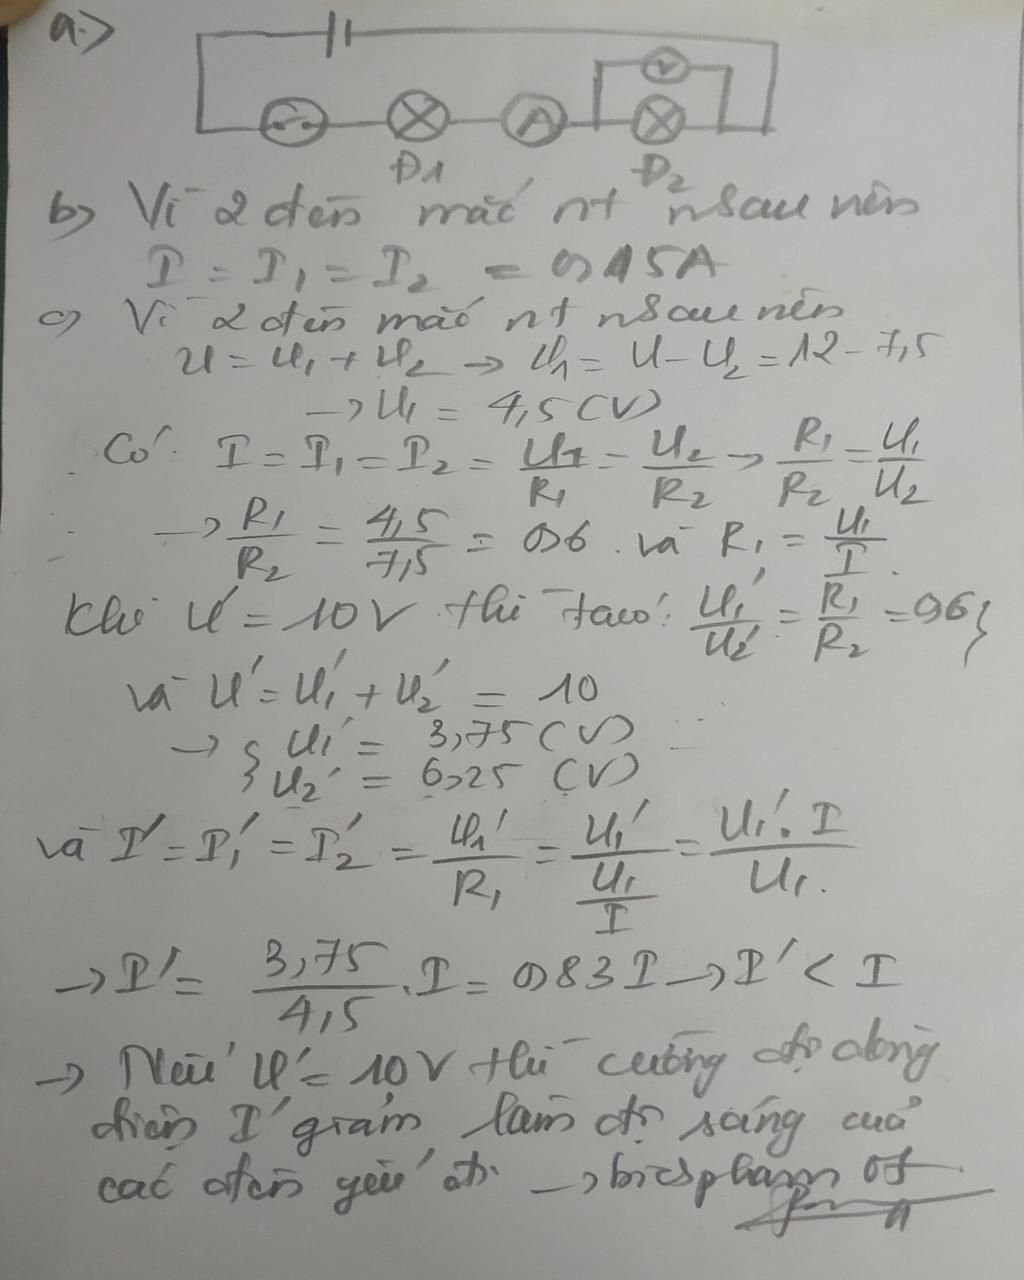 a.>
V
A
Đ1 Đ2
b) Vì 2 đèn mắc nt nhau nên
I = I₁ = I₂ = 0,15A
c) Vì 2 đèn mắc nt nhau nên
U = U₁ + U₂ → U₁ = U - U₂ = 12 - 7,5
→ U₁ = 4,5 (V)
Có: I = I₁ = I₂ = U₁/R₁ = U₂/R₂ → R₁/R₂ = U₁/U₂
→ R₁/R₂ = 4,5/7,5 = 0,6 . và R₁ = U₁/I .
Khi U' = 10V thì ta có: U₁'/U₂' = R₁/R₂ = 0,6 }
và U' = U₁' + U₂' = 10
→ { U₁' = 3,75 (V)
{ U₂' = 6,25 (V)
và I' = I₁' = I₂' = U₁'/R₁ = U₁'/(U₁/I) = U₁'.I/U₁.
→ I' = 3,75/4,5 .I = 0,83 I → I' < I
→ Nếu U' = 10V thì cường độ dòng
điện I' giảm làm độ sáng của
các đèn yếu đi. →